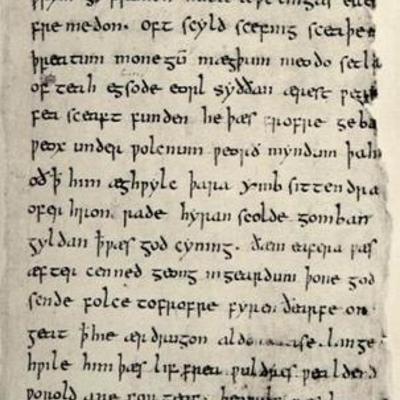 fremedon. oft scyld scefing sceaþe
þreatum monegū mægþum meodo setla
of teah egsode eorl syððan ærest
fea sceaft funden he þæs frofre geba
weox under wolcnum weorð myndum þah
oð ꝥ him æghwylc þara ymb sittendra
ofer hron rade hyran scolde gomban
gyldan þ wæs god cyning. ðæm eafera wæs
æfter cenned geong in geardum þone god
sende folce to frofre fyren ðearfe on
geat þ hie ær drugon aldor ase. lange
hwile him þæs lif frea wuldres wealdend
worold are for geaf.